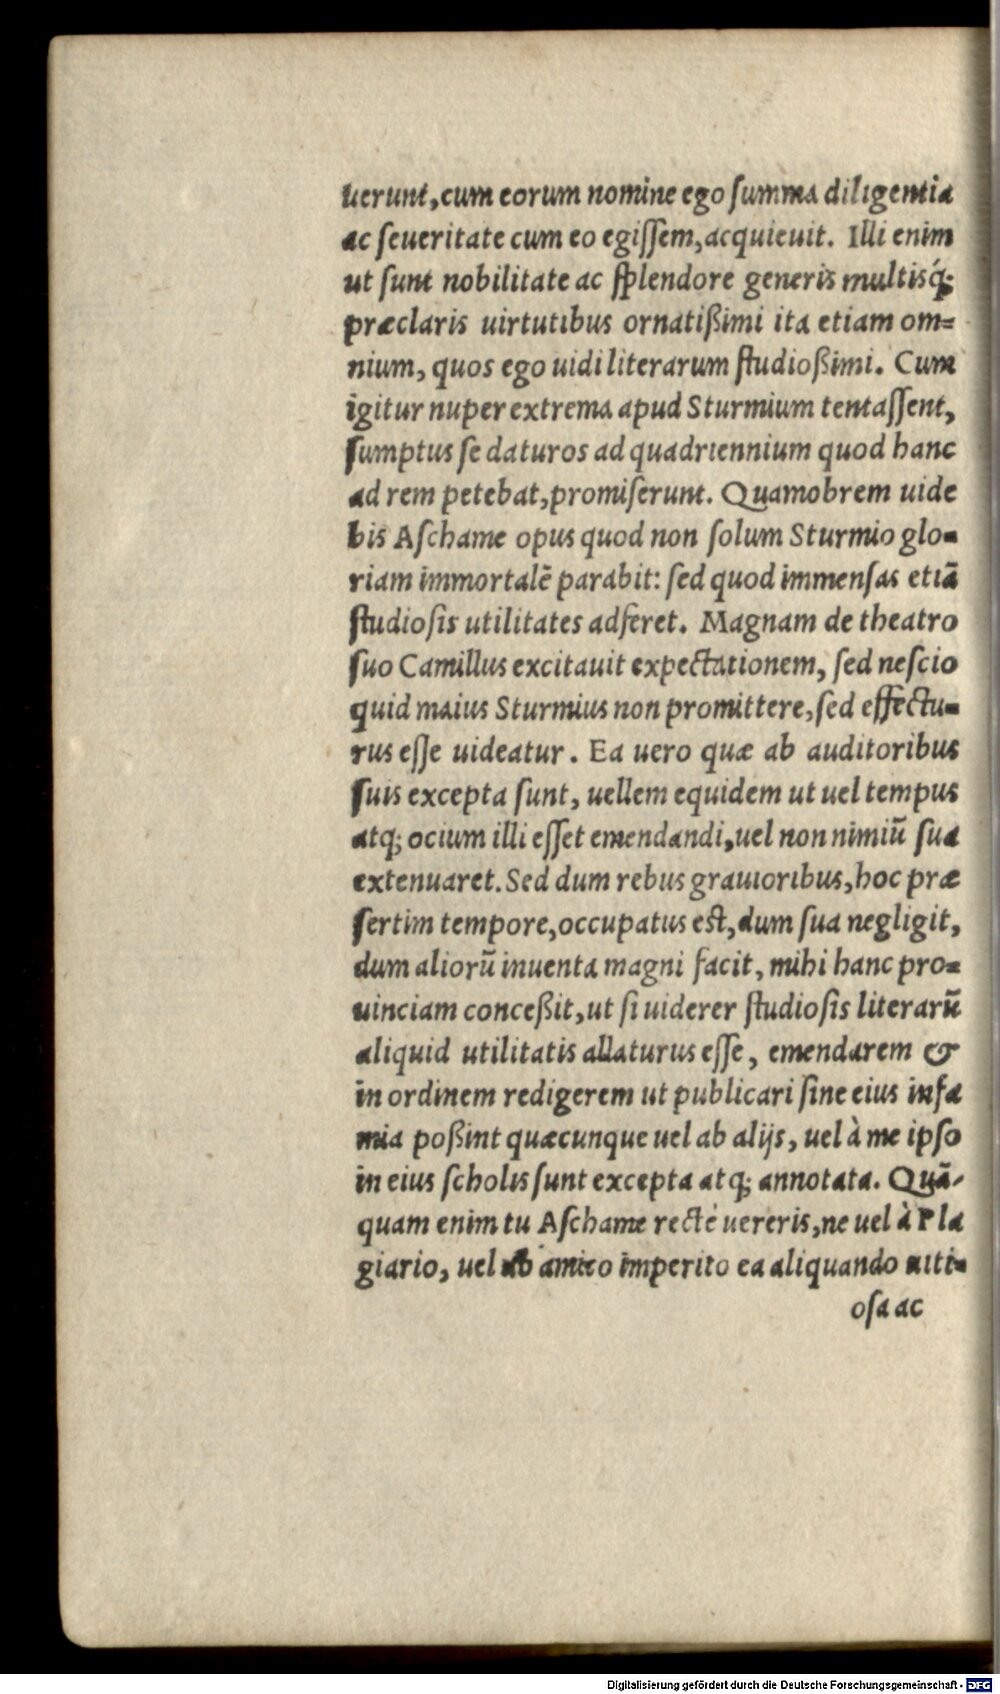 uerunt, cum eorum nomine ego ſumma diligentia
ac ſeueritate cum eo egiſſem, acquieuit. Illi enim
ut ſunt nobilitate ac ſplendore generis multisq́;
præclaris uirtutibus ornatißimi ita etiam om=
nium, quos ego uidi literarum ſtudioßimi. Cum
igitur nuper extrema apud Sturmium tentaſſent,
ſumptus ſe daturos ad quadriennium quod hanc
ad rem petebat, promiſerunt. Quamobrem uide
bis Aſchame opus quod non ſolum Sturmio glo=
riam immortalē parabit: ſed quod immenſas etiã
ſtudioſis utilitates adferet. Magnam de theatro
ſuo Camillus excitauit expectationem, ſed neſcio
quid maius Sturmius non promittere, ſed effectu=
rus eſſe uideatur. Ea uero quæ ab auditoribus
ſuis excepta ſunt, uellem equidem ut uel tempus
atq; ocium illi eſſet emendandi, uel non nimiũ ſua
extenuaret. Sed dum rebus grauioribus, hoc præ
ſertim tempore, occupatus eſt, dum ſua negligit,
dum aliorũ inuenta magni facit, mihi hanc pro=
uinciam conceßit, ut ſi uiderer ſtudioſis literarũ
aliquid utilitatis allaturus eſſe, emendarem &
in ordinem redigerem ut publicari ſine eius infa
mia poßint quæcunque uel ab alijs, uel à me ipſo
in eius ſcholis ſunt excepta atq; annotata. Quã-
quam enim tu Aſchame recté uereris, ne uel à Pla
giario, uel ab amico imperito ea aliquando uiti=
oſa ac
Digitalisierung gefördert durch die Deutsche Forschungsgemeinschaft - DFG